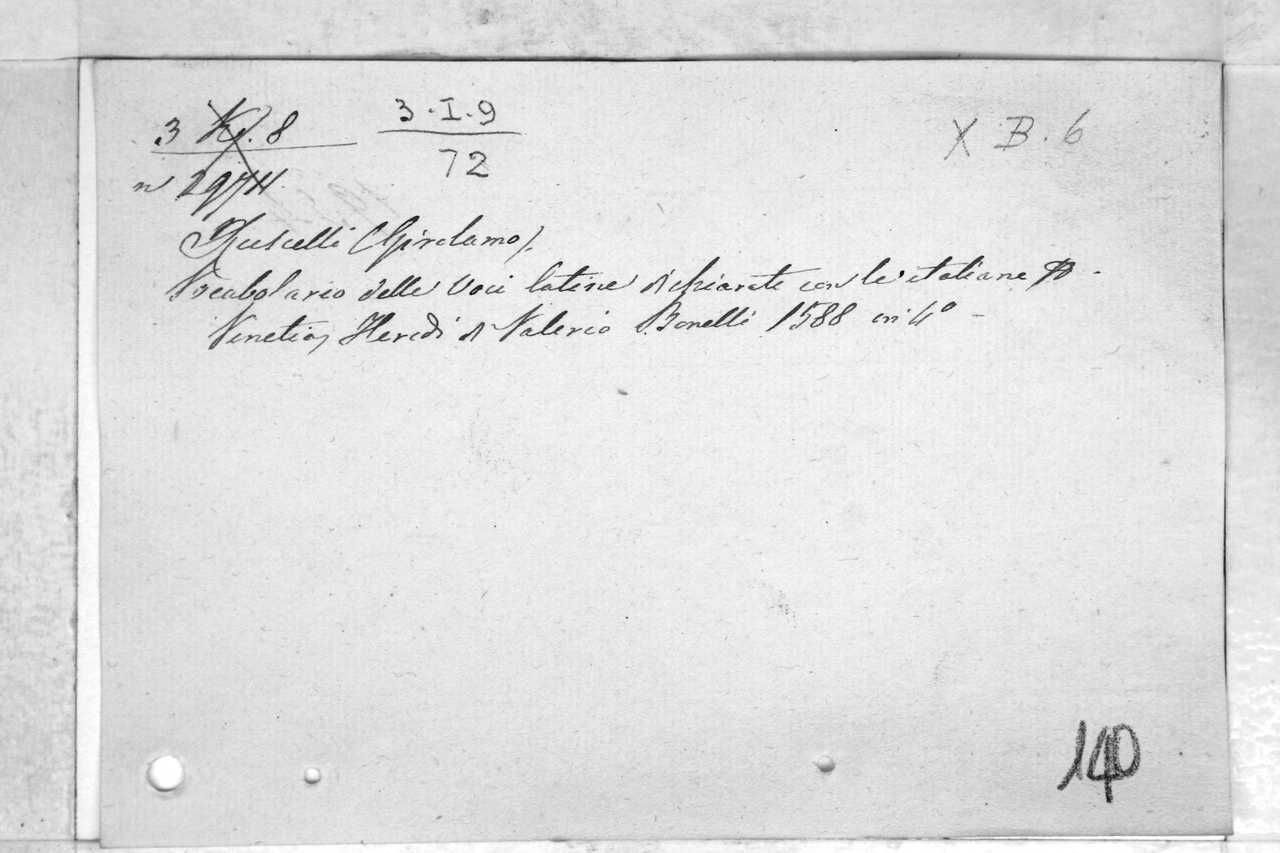 3 K. 8
3·I·9
X B. 6
n° 2974
72
Ruscelli (Girolamo).
Vocabolario delle voci latine dichiarate con le italiane
Venetia, Heredi di Valerio Bonelli 1588 in 4° -
140